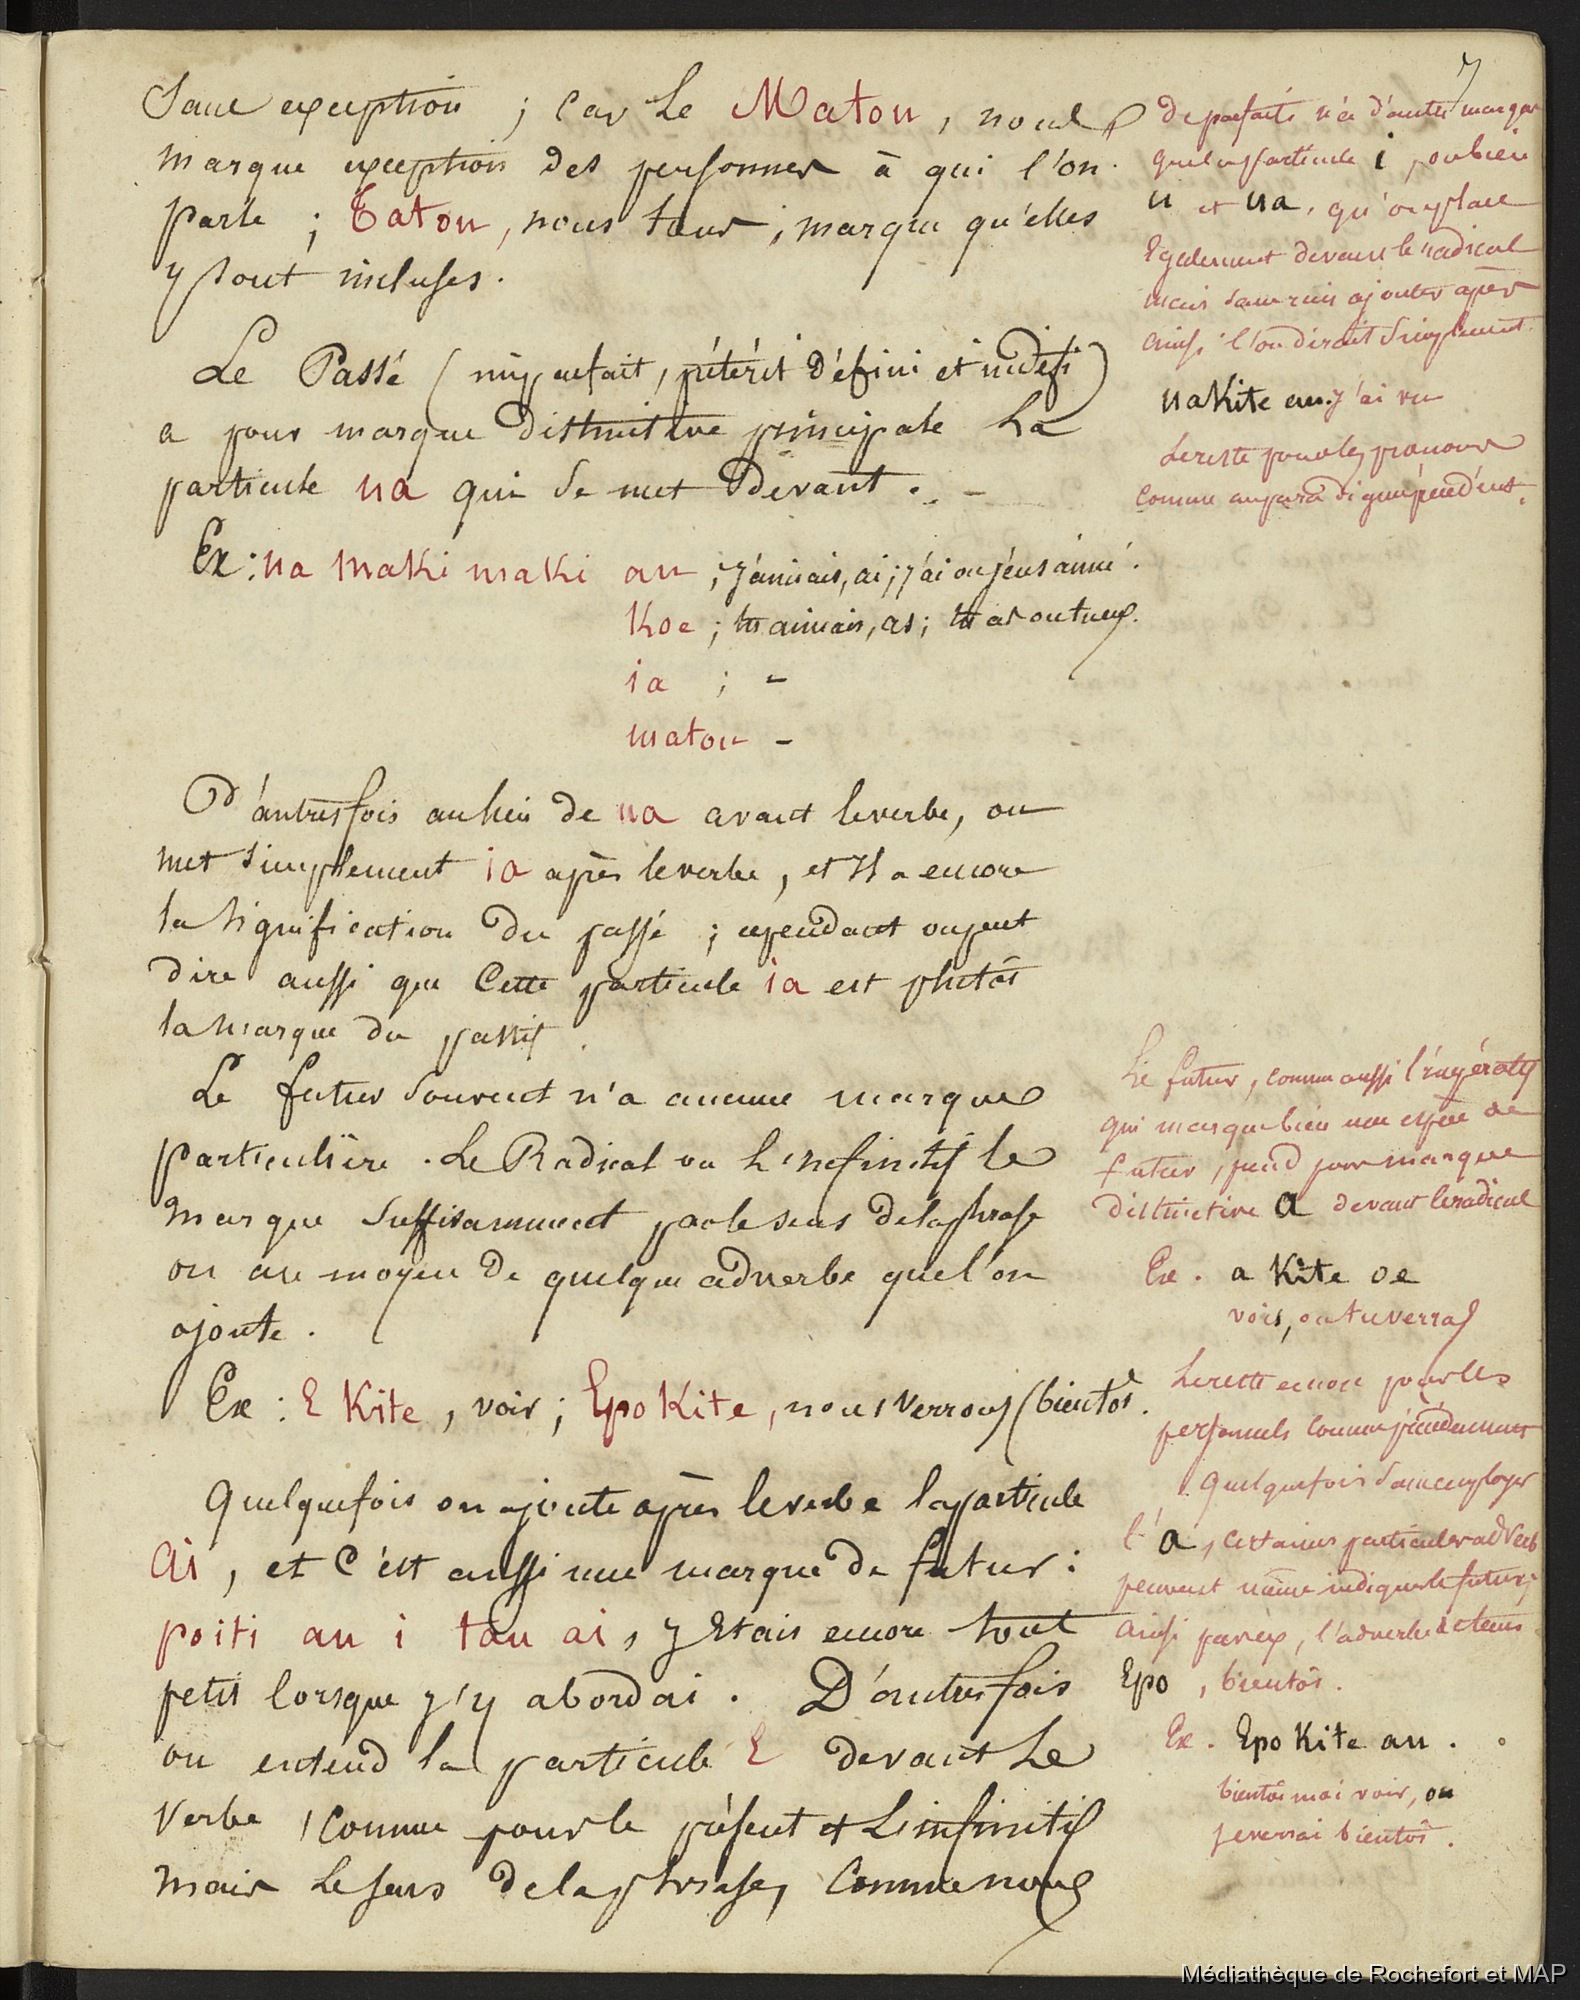 7
Sans exception ; car le Matou, nous
marque exception des personnes à qui l'on
parle ; Tatou, nous tous ; marque qu'elles
y sont incluses.
Le Passé (imparfait, prétérit défini et indéfi)
a pour marque distinctive principale la
particule ua qui se met devant.
Ex : ua maki maki au ; j'aimais, ai ; j'ai ou j'eus aimé.
Koe ; tu aimais, as ; tu as ou tu eus.
ia ; -
matou -
D'autresfois au lieu de ua avant le verbe, on
met simplement ia après le verbe, et il a encore
la signification du passé ; cependant on peut
dire aussi que cette particule ia est plutôt
la marque du passif.
Le futur souvent n'a aucune marque
particulière. Le Radical ou L'infinitif le
marque suffisamment par le sens de la phrase
ou au moyen de quelque adverbe que l'on
ajoute.
Ex : E Kite, voir ; Epo Kite, nous verrons (bientôt.
Quelquefois on ajoute après le verbe la particule
ai, et c'est aussi une marque de futur :
poiti au i tau ai, j'étais encore tout
petit lorsque j'y abordai. D'autresfois
on entend la particule E devant le
verbe, comme pour le présent et L'infinitif
mais le sens de la phrase, comme nous
de parfaits n'a d'autre marque
que la particule i, ou bien
u et ua, qu'on place
également devant le radical
mais sans rien ajouter après
ainsi l'on dirait simplement
ua Kite au. j'ai vu
Le reste pour les pronoms
comme au paradigme précédent.
Le futur, comme aussi l'impératif
qui marque bien une espèce de
futur, prend pour marque
distinctive a devant le radical
Ex. a Kite oe
vois, ou tu verras
Le reste encore pour les
personnels comme précédemment
Quelquefois sans employer
l'a, certaines particules adverb
peuvent même indiquer le futur ;
ainsi par ex, l'adverbe de temps
Epo, bientôt.
Ex. Epo Kite au.
bientôt moi voir, ou
je verrai bientôt.
Médiathèque de Rochefort et MAP